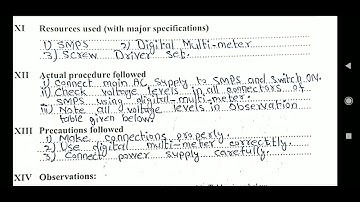 XI Resources used (with major specifications)
1) SMPS 2) Digital Multi-meter
3) Screw Driver Set.
XII Actual procedure followed
i) Connect main AC supply to SMPS and switch ON.
ii) Check voltage levels in all connectors of
SMPS using digital-multi-meter.
iii) Note all voltage levels in observation
table given below.
XIII Precautions followed
1) Make connections properly.
2) Use digital multi-meter correctly.
3) Connect power supply carefully.
XIV Observations: